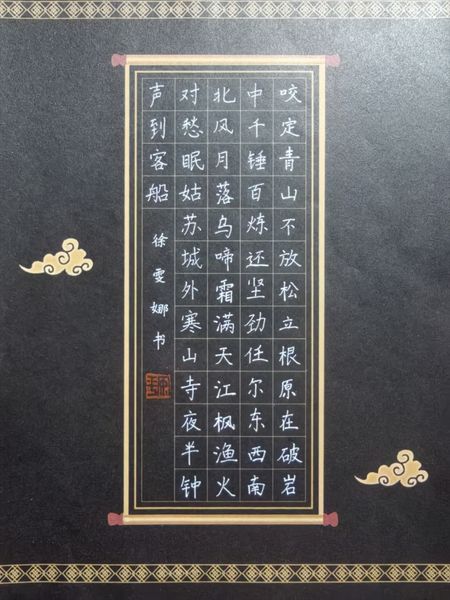 咬定青山不放松立根原在破岩
中千锤百炼还坚劲任尔东西南
北风月落乌啼霜满天江枫渔火
对愁眠姑苏城外寒山寺夜半钟
声到客船
徐雯娜书